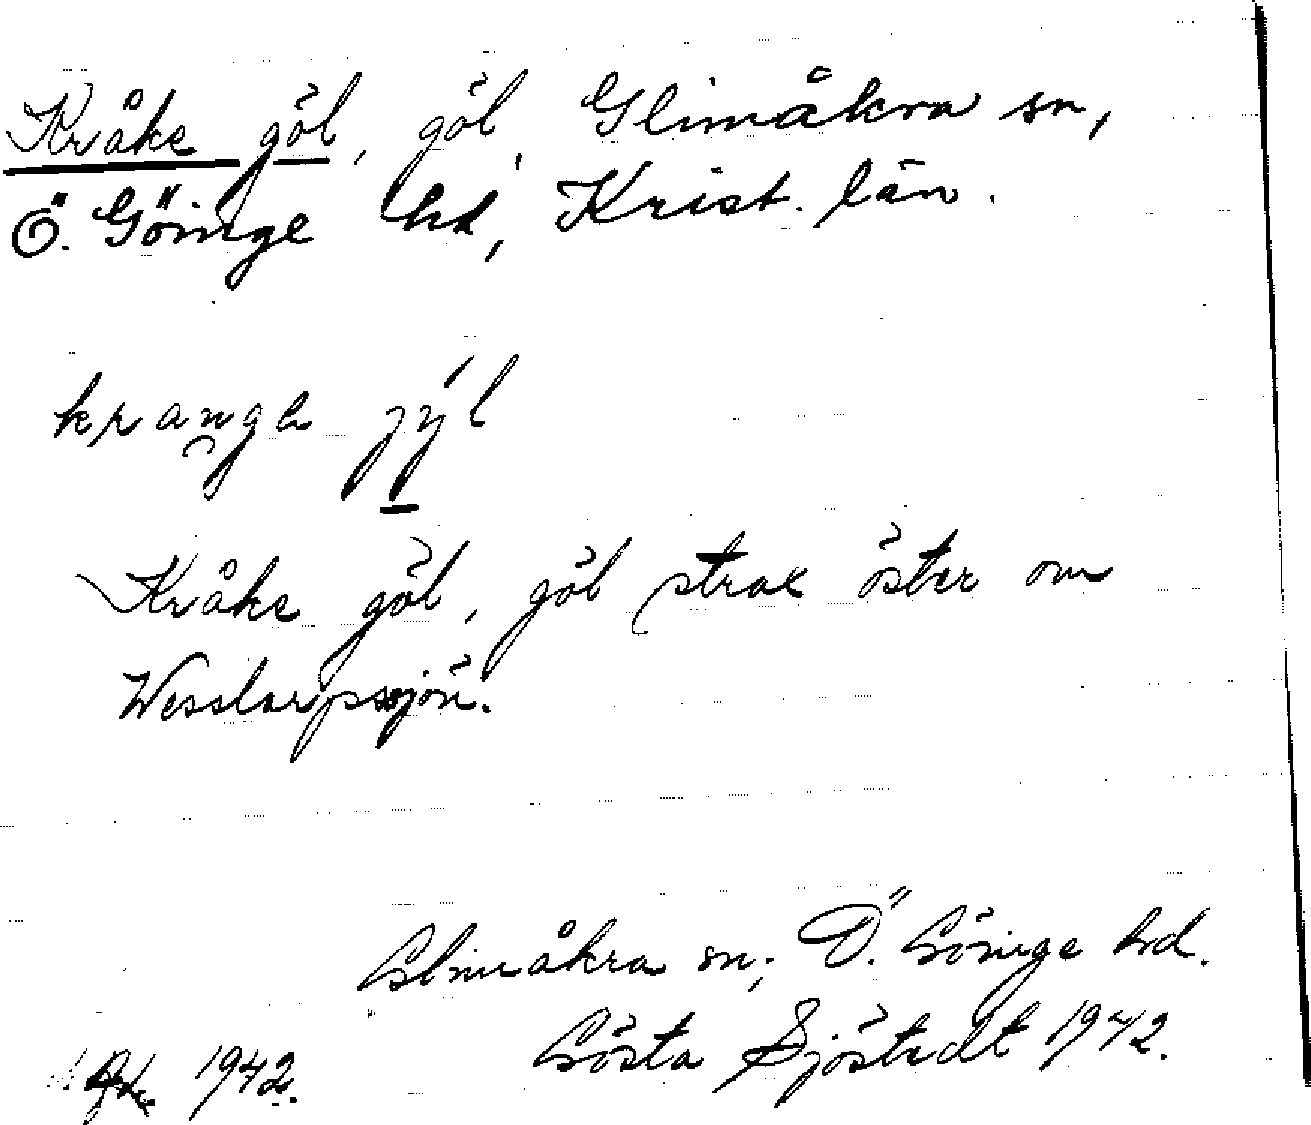 Kråke göl, göl, Glimåkra sn,
Ö. Göinge hd, Krist. län.
jýl
Kråke göl, göl strax öster om
Wesslarpssjön.
Glimåkra sn; Ö. Göinge hd.
Gösta Sjöstedt 1942.
1942.